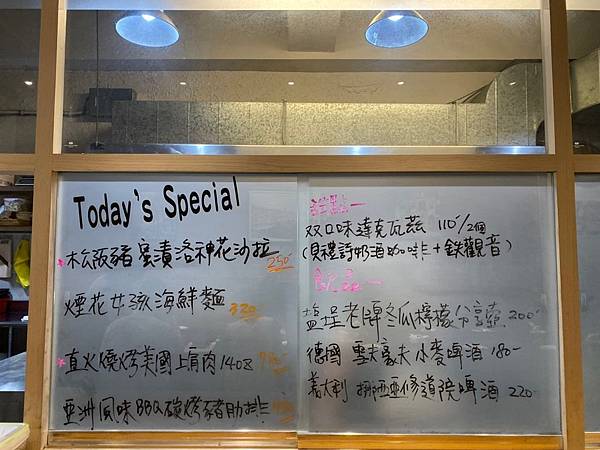 Today's Special
*松阪豬蜜漬洛神花沙拉 250
煙花女孩海鮮麵 320
*直火燒烤美國上肩肉 14oz
亞洲風味BBQ碳烤豬肋排
甜點—
双口味達克瓦茲 110/2個
(貝禮詩奶酒咖啡+鉄觀音)
飲品—
鹽埕老牌冬瓜檸檬分享壺 200
德國 小麥啤酒 180-
義大利 挪亞修道院啤酒 220